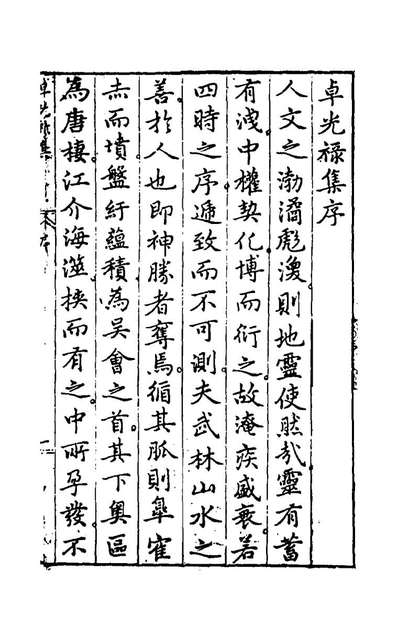 卓光祿集序
人文之渤潏彪濩則地靈使然哉靈有蓄
有洩中權契化博而衍之故淹疾盛衰若
四時之序遞致而不可測夫武林山水之
善於人也即神勝者奪焉循其脈則臯
赤而墳盤紆蘊積為吳會之首其下奧區
為唐棲江介海澨挾而有之中所孕發不